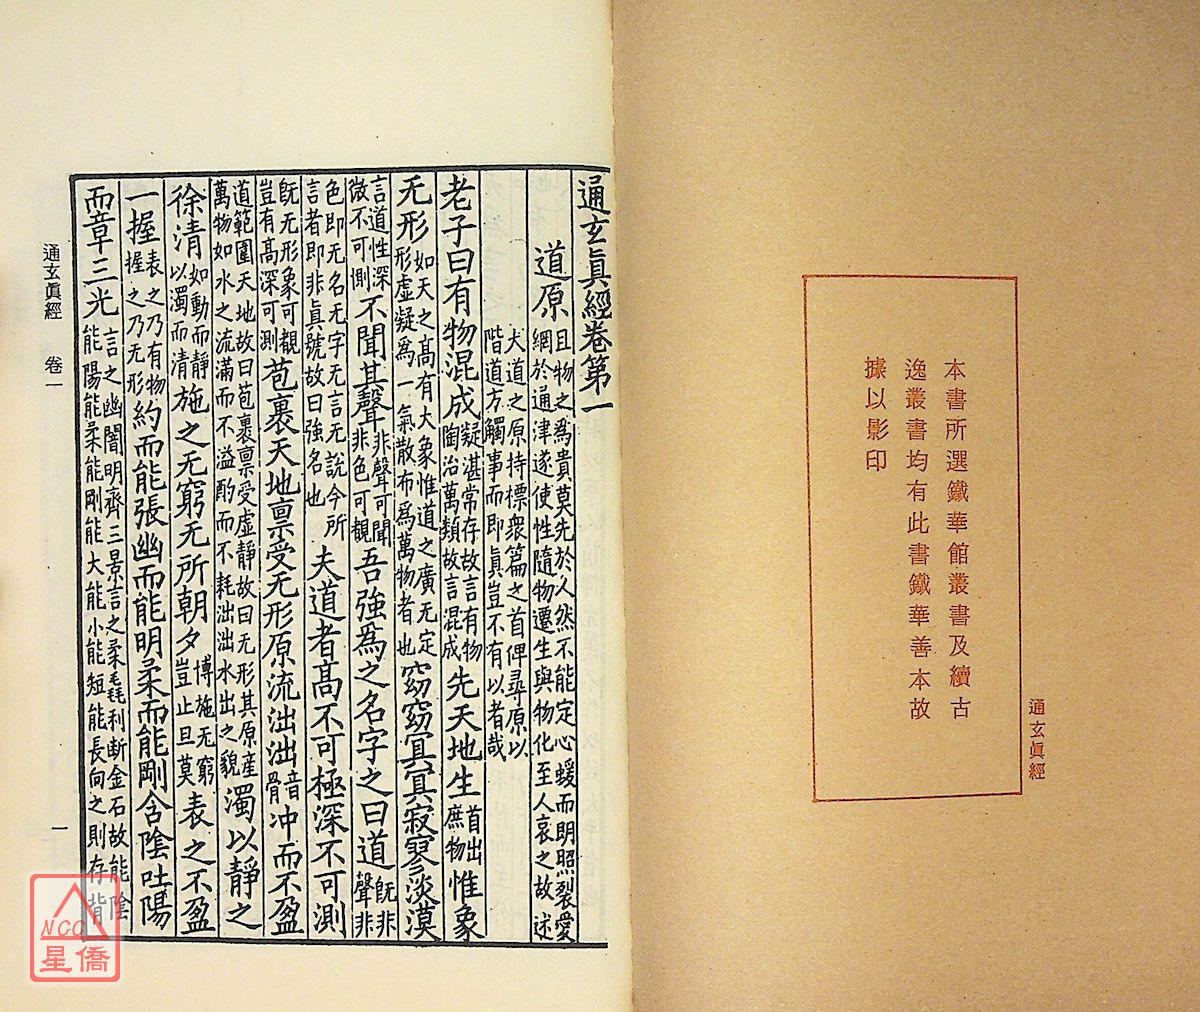 本書所選鐵華館叢書及續古
逸叢書均有此書鐵華善本故
據以影印
通玄眞經
通玄眞經卷第一
道原 且物之爲貴莫先於人然不能定心蝯而明照裂愛
網於通津遂使性隨物遷生與物化至人哀之故述
大道之原持標衆篇之首俾尋原以
階道方觸事而即眞豈不有以者哉
老子曰有物混成 凝湛常存故言有物
陶冶萬類故言混成 先天地生 首出
庶物 惟象
无形 如天之高有大象惟道之廣无定
形虛凝爲一氣散布爲萬物者也 窈窈冥冥寂寥淡漠
言道性深
微不可測 不聞其聲 非聲可聞
非色可觀 吾強爲之名字之曰道 旣非
聲非
色即无名无字无言无說今所
言者即非眞號故曰強名也 夫道者高不可極深不可測
旣无形象可觀
豈有高深可測 苞裹天地禀受无形原流泏泏 音
骨 冲而不盈
道範圍天地故曰苞裹禀受虛靜故曰无形其原產
萬物如水之流滿而不溢酌而不耗泏泏水出之貌 濁以靜之
徐清 如動而靜
以濁而清 施之无窮无所朝夕 博施无窮
豈止旦莫 表之不盈
一握 表之乃有物
握之乃无形 約而能張幽而能明柔而能剛含陰吐陽
而章三光 言之幽闇明齊三景言之柔毳利斷金石故能陰
能陽能柔能剛能大能小能短能長向之則存背
通玄眞經 卷一
一
NCC
星僑